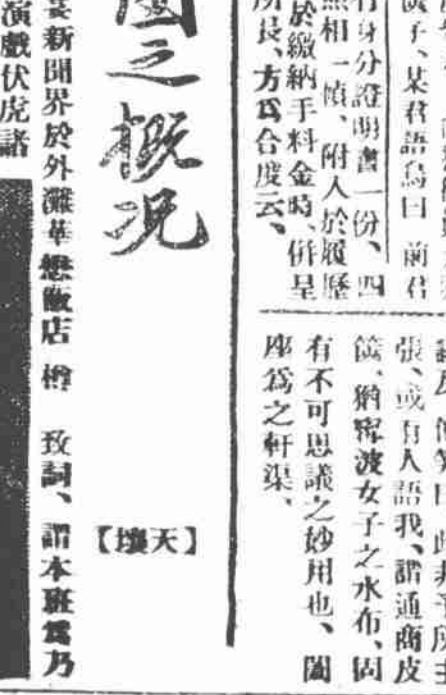 子、某君語烏曰　前君
身分證明書一份、四
照相一幀、附入於履歷
於繳納手料金時、併呈
所長、方爲合度云、
張、或有人語我、謂通商皮
篋、猶甯波女子之水布、固
有不可思議之妙用也、闔
座爲之軒渠、
國之概况
【天壤】
新聞界於外灘華懋飯店
致詞、謂本班爲乃
演戲伏虎諸